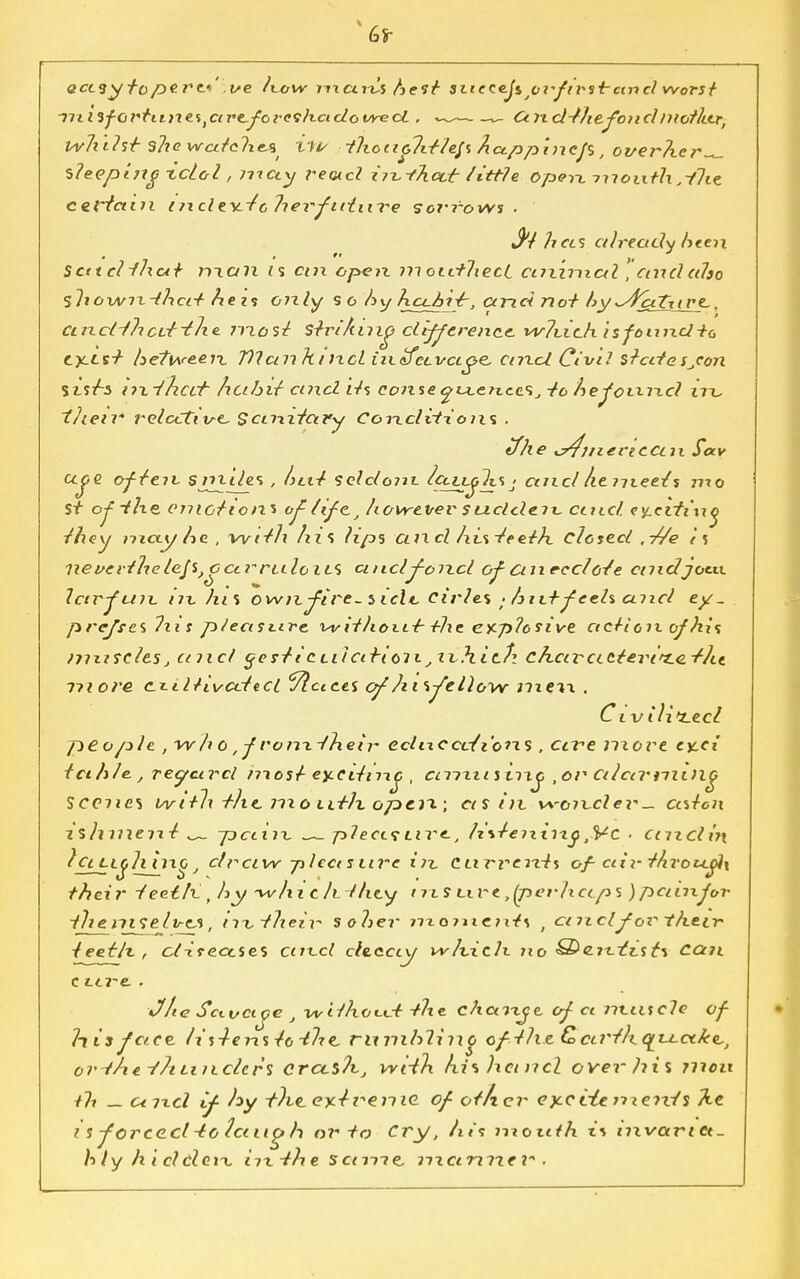 65
easy to perceive how man's best success, or first and worst
misfortunes, are foreshadowed. —— And the fond mother,
whilst she watches, in thoughtless happiness, over her —
sleeping idol, may read in that little open mouth, the
certain index to her future sorrows.
It has already been
said that man is an open mouthed animal, and also
shown that he is only so by habit, and not by Nature.
and that the most striking difference which is found to
exist between Mankind in Savage and Civil states, con
sists in that habit and its consequences, to be found in
their relative Sanitary Conditions.
The American Sav
age often smiles, but seldom laughs; and he meets mo
st of the emotions of life, however sudden and exciting
they may be, with his lips and his teeth closed. He is
nevertheless, garrulous and fond of anecdote and jocu
lar fun in his own fire-side circles; but feels and ex-
presses his pleasure without the explosive action of his
muscles, and gesticulation, which characterize the
more cultivated Races of his fellow men.
Civilized
people, who, from their educations, are more exci
table, regard most exciting, amusing, or alarming
Scenes with the mouth open; as in wonder — aston
ishment — pain — pleasure, listening, &c. and in
laughing, draw pleasure in currents of air through
their teeth, by which they insure, (perhaps) pain for
themselves, in their sober moments, and for their
teeth, diseases and decay which no Dentists can
cure.
The Savage, without the change of a muscle of
his face listens to the rumbling of the Earthquake,
or the thunder's crash, with his hand over his mou
th — and if by the extreme of other excitements he
is forced to laugh or to cry, his mouth is invaria-
bly hidden in the same manner.